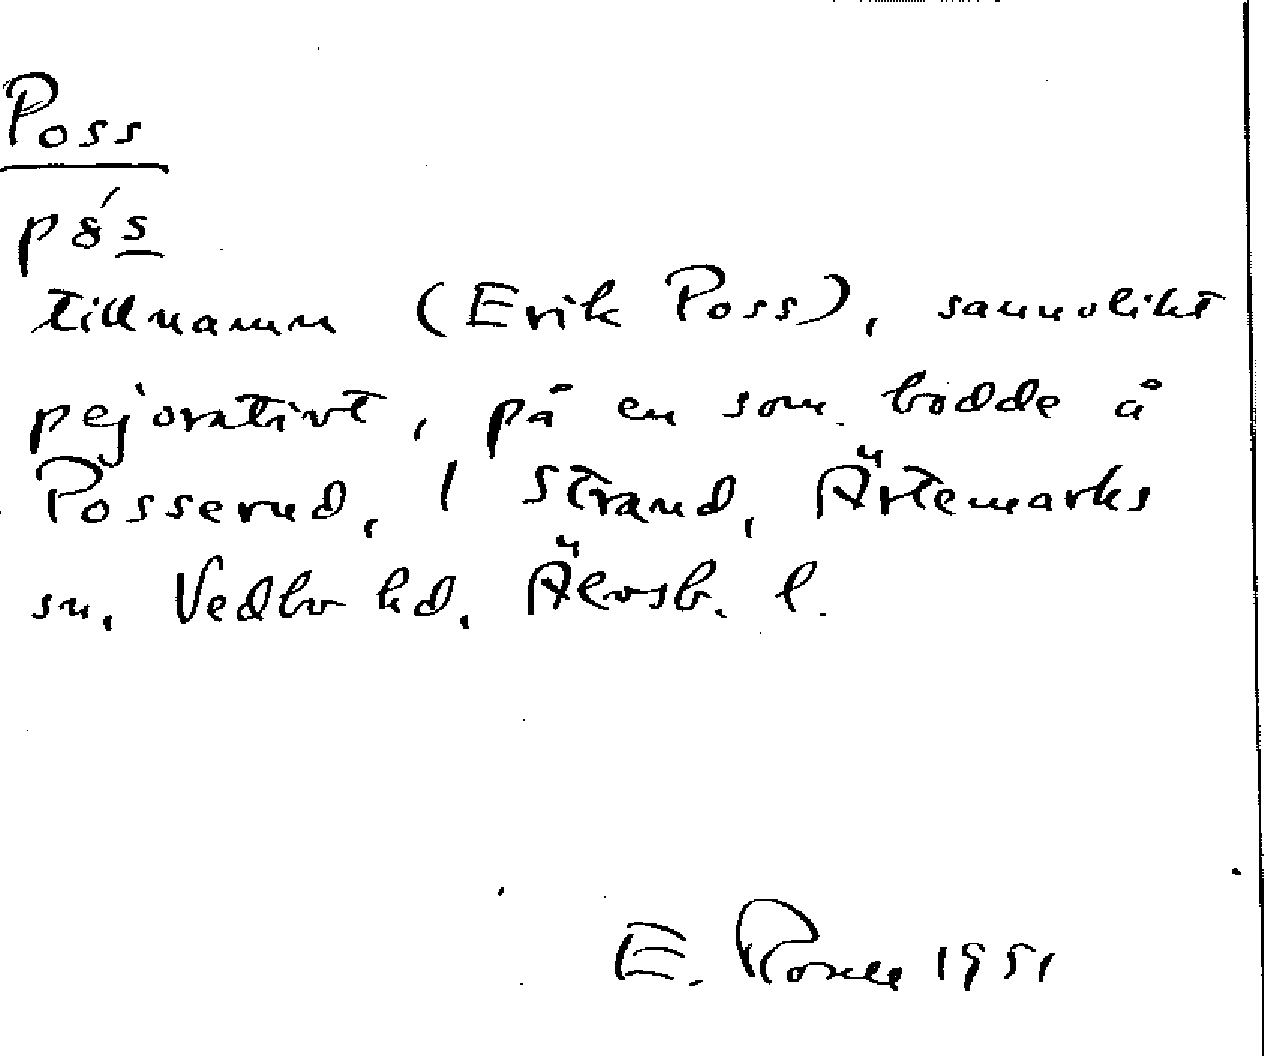 Poss
pȣ́s
tillnamn (Erik Poss), sannolikt
pejorativt, på en som bodde å
Posserud, l Strand, Ärtemarks
sn, Vedbo hd, Älvsb. l.
E. 1951